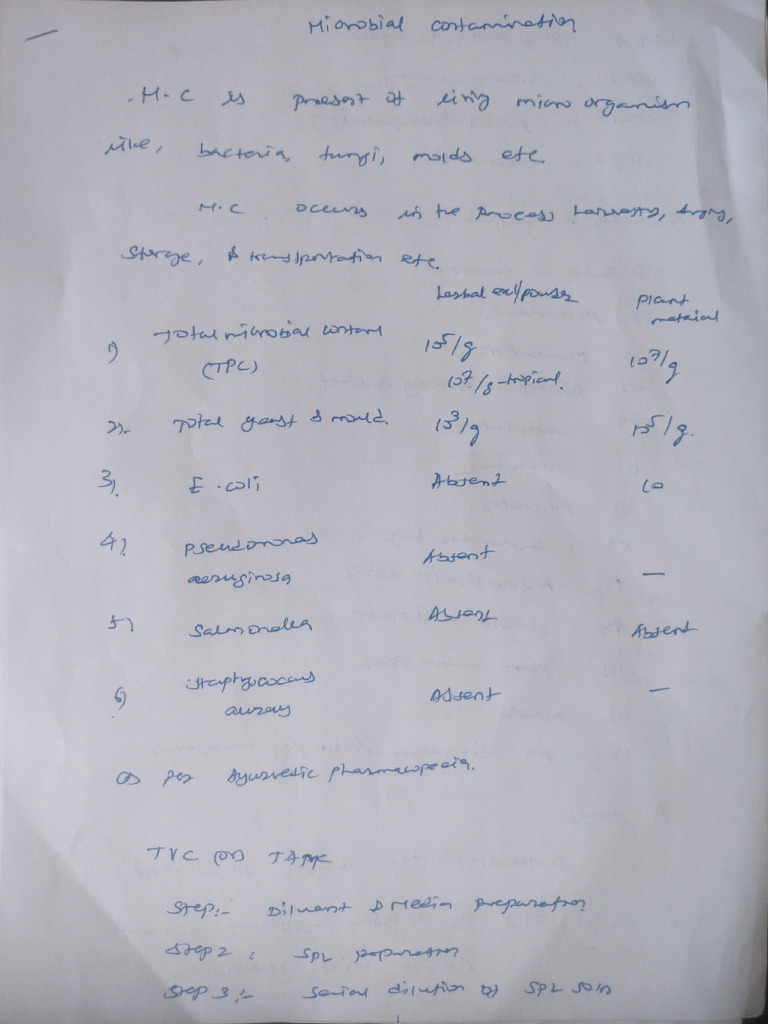 Microbial contamination
M.C is present of living micro organism
like, bacteria, fungi, molds etc.
M.C occurs in the process harvesting, drying,
Storge, & transportation etc.
Herbal ext/powder Plant
material
1) Total microbial content 10⁵/g 10⁷/g
(TPC) 10⁷/g-tropical.
2). Total yeast & mould. 10³/g 10⁵/g.
3). E.coli Absent 10
4) Pseudomonas Absent —
aeruginosa
5) Salmonella Absent Absent
6) Absent —
per Ayurvedic pharmacopoeia.
TVC (OR)
Step:- Diluent & Media preparation
Step 2: SPL preparation
Step 3:- Serial dilution of SPL soln